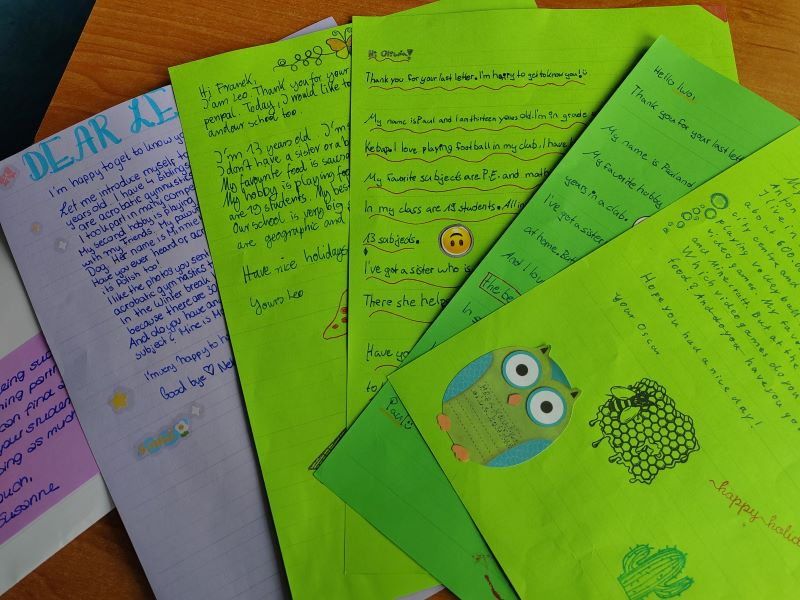 DEAR LE
I'm happy to get to know y
Let me introduce myself to
years old. I have 4 siblings
are acrobatic gymnastics
I took part in many compe
My second hobby is playing
with my friends. My favou
Day. Her name is Minnie
Have you ever heard of acro
is Polish too!
I like the photos you sen
acrobatic gymnastics t
In the winter break
because there are so
And do you have any
subject? Mine is Ma
I'm very happy to h
Good bye ♡ Nel
Hi Franek,
I am Leo. Thank you for your
penpal. Today, I would like to
and our school too.
I'm 13 years old. I'm
I don't have a sister or a b
My favourite food is sausag
My hobby is playing foo
are 19 students. My best
Our school is very big a
are geographic and
Have nice holidays
Yours Leo
Hi Oliwia!
Thank you for your last letter. I'm happy to get to know you!
My name is Paul and I am thirteen years old. I'm in grade s
Kebap. I love playing football in my club. I have
My favorite subjects are P.E. and math
In my class are 19 students. All in
13 subjects.
I've got a sister who is
There she help
Have yo
to
Hello Iwo,
Thank you for your last lett
My name is Paul and
My favorite hobby
years in a club.
I've got a sister
at home. But
And I lov
the be
In m
Paul
I live in
about 600.0
city centre and
playing volleyball
video games. My favo
and Minecraft. But at the
Which video games do you
food? And do you have
Hope you had a nice day!
your Oscar
happy holid
being suc
ning partn
can find
your studen
oing as much
ouch,
Susanne